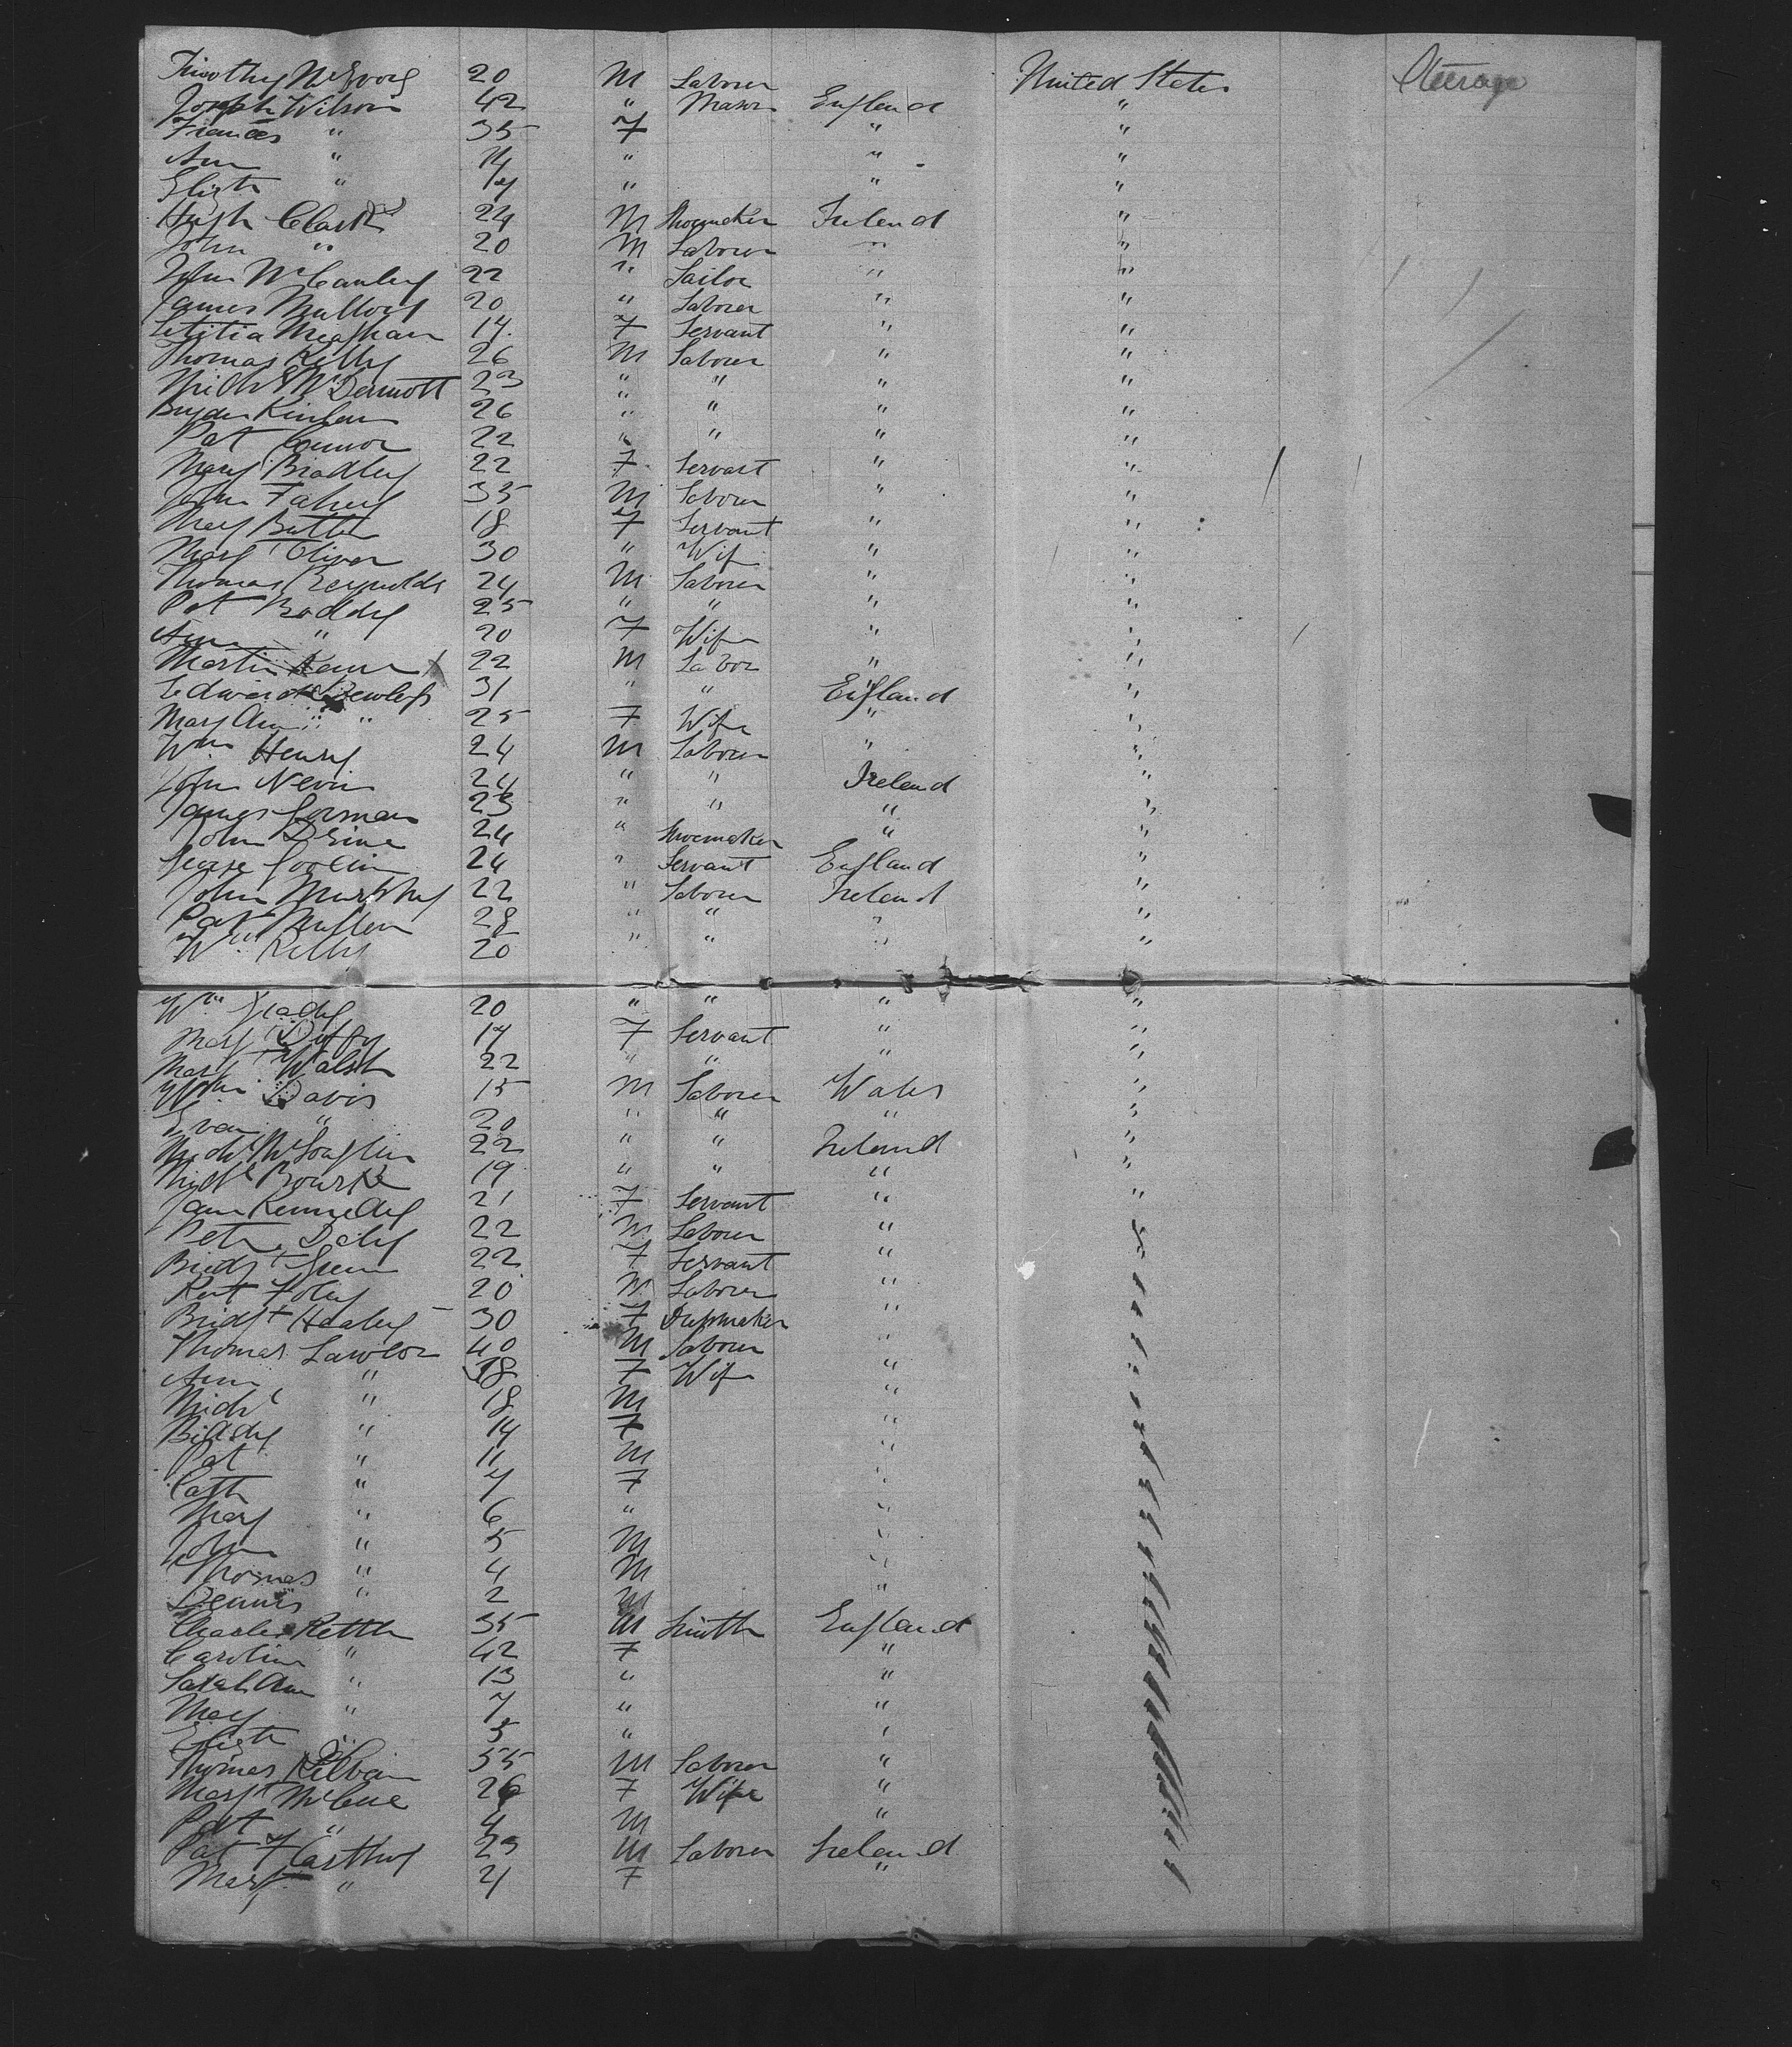 Timothy McEvoy 20 M Laborer United States Steerage
Joseph Wilson 42 " Mason England "
Frances " 35 F " "
Ann " 14 " " "
Elizth " 14 " " "
Hugh Clark 24 M Shoemaker Ireland "
John " 20 M Laborer " "
John McCauley 22 " Sailor " "
James Mulloy 20 " Laborer " "
Letitia Meghan 14 F Servant " "
Thomas Kelly 26 M Laborer " "
Michl McDermott 23 " " " "
Bryan 26 " " " "
Pat Connor 22 " " " "
Mary Bradley 22 F Servant " "
John Fahey 35 M Laborer " "
Mary Butler 18 F Servant " "
Margt Oliver 30 " Wife " "
Thomas Reynolds 24 M Laborer " "
Pat Boddy 25 " " " "
Ann " 20 F Wife " "
Martin Kenn 22 M Labor " "
Edward 31 " " England "
Mary Ann " 25 F Wife " "
Wm Henry 24 M Laborer " "
John Nevin 24 " " Ireland "
James Gorman 23 " " " "
John Devine 24 " Shoemaker " "
George 24 " Servant England "
John Murphy 22 " Laborer Ireland "
Pat Mullen 28 " " " "
Wm Kelly 20 " " " "
Wm Grady 20 " " " "
Mary Duffy 17 F Servant " "
Margt Walsh 22 " " " "
Wm Davis 15 M Laborer Wales "
Evan " 20 " " " "
Michl McLoughlin 22 " " Ireland "
Michl Bourke 19 " " " "
Jane Kennedy 21 F Servant " "
Peter Daly 22 M Laborer " "
Bridgt 22 F Servant " "
Foley 20 M Laborer " "
Bridgt Healey 30 F Dressmaker " "
Thomas Lawlor 40 M Laborer " "
Ann " 38 F Wife " "
Michl " 18 M " "
Biddy " 14 F " "
Pat " 11 M " "
Cath " 7 F " "
Mary " 6 " " "
John " 5 M " "
Thomas " 4 M " "
Dennis " 2 M " "
Charles Kettle 35 M Smith England "
Caroline " 42 F " "
Sarah Ann " 13 " " "
Mary " 7 " " "
Elizth " 5 " " "
Thomas 55 M Laborer " "
Margt McCue 26 F Wife " "
Pat " 4 M " "
Pat 23 M Laborer Ireland "
Margt " 21 F " "